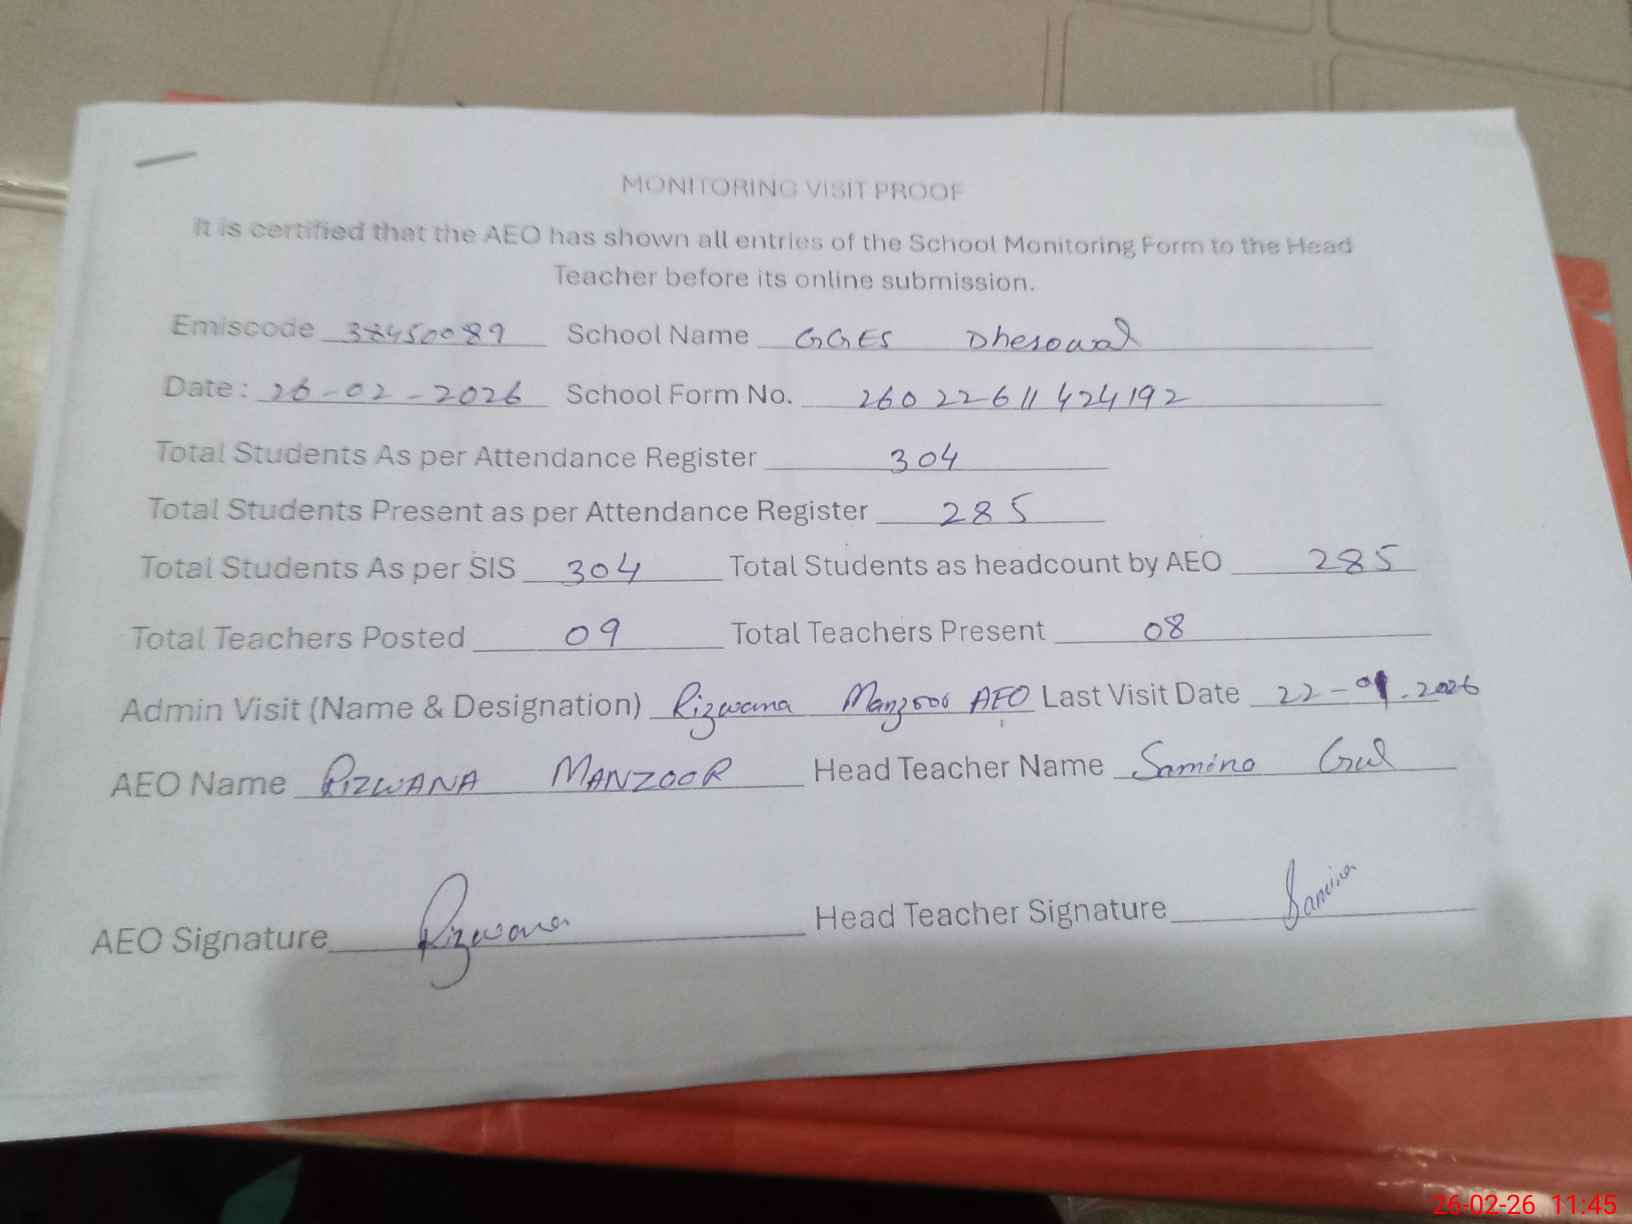 MONITORING VISIT PROOF
It is certified that the AEO has shown all entries of the School Monitoring Form to the Head
Teacher before its online submission.
Emiscode 38450089 School Name GGES Dhesowal
Date: 26-02-2026 School Form No. 26022611424192
Total Students As per Attendance Register 304
Total Students Present as per Attendance Register 285
Total Students As per SIS 304 Total Students as headcount by AEO 285
Total Teachers Posted 09 Total Teachers Present 08
Admin Visit (Name & Designation) Rizwana Manzoor AEO Last Visit Date 22-01.2026
AEO Name RIZWANA MANZOOR Head Teacher Name Samina Gul
AEO Signature Rizwana Head Teacher Signature Samina
26-02-26 11:45